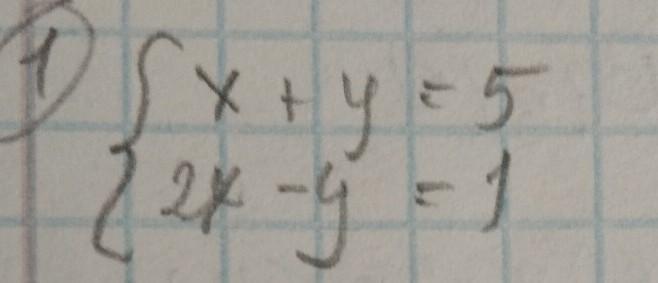 1) { x + y = 5
2x - y = 1